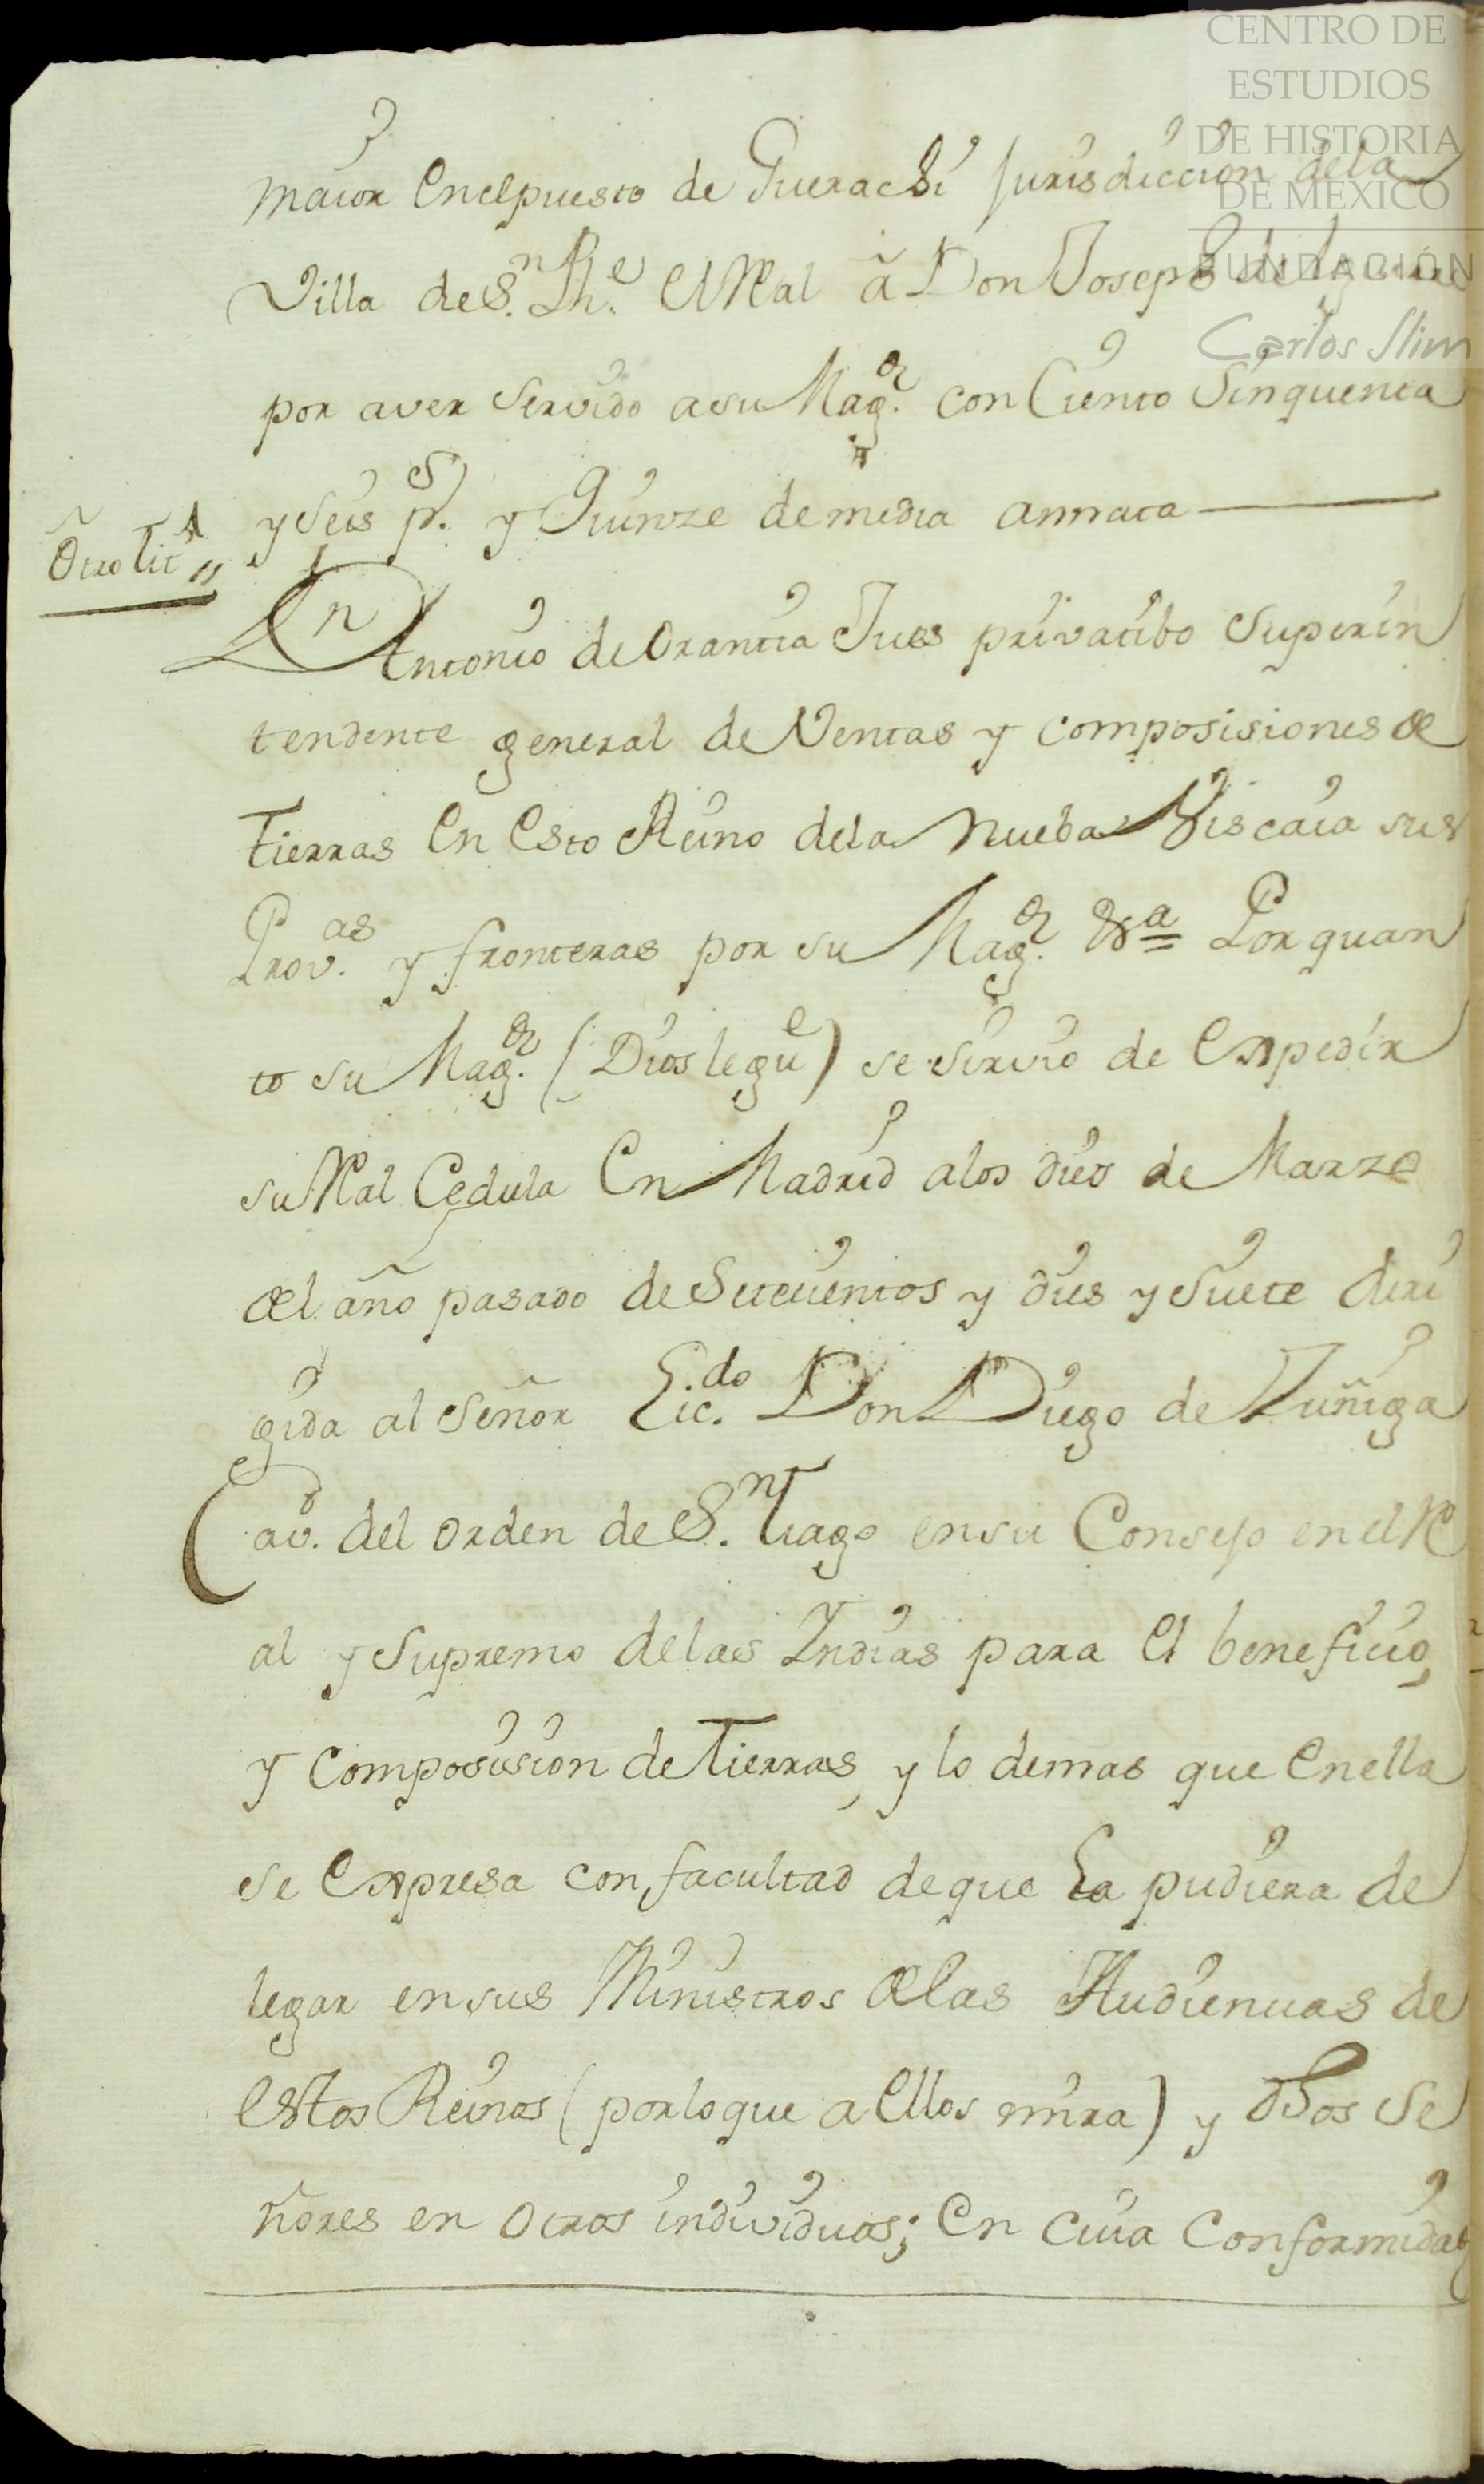 CENTRO DE
ESTUDIOS
DE HISTORIA
DE MÉXICO
FUNDACIÓN
Carlos Slim
maior en el puesto de Guerachi Jurisdiccion de la
Villa de S.n Phe. el Rral â Don Joseph de
por aver servido a su Mag.d con Ciento sinquenta
y seis p.s y Quinze de media annata
Otro Tit.
Dn Antonio de Orantia Jues privatibo Superin
tendente general de Ventas y composisiones de
Tierras en esto Reino de la Nueba Viscaia sus
Prov.as y fronteras por su Mag.d &a Por quan
to su Mag.d (Dios le gue) se sirvio de expedir
su Rral Cedula en Madrid a los dies de Marzo
del año pasado de Setecientos y dies y siete diri
gida al Señor Lic.do Don Diego de Zuñiga
Cav.o del orden de S.n Tiago en su Consejo en el R
al y Supremo de las Indias para el beneficio,
y composision de Tierras, y lo demas que en ella
se expresa con facultad de que La pudiera de
legar en sus Ministros de las Audiencias de
estos Reinos (por lo que a ellos mira) y dhos Se
ñores en otros individuos; en cuia Conformidad